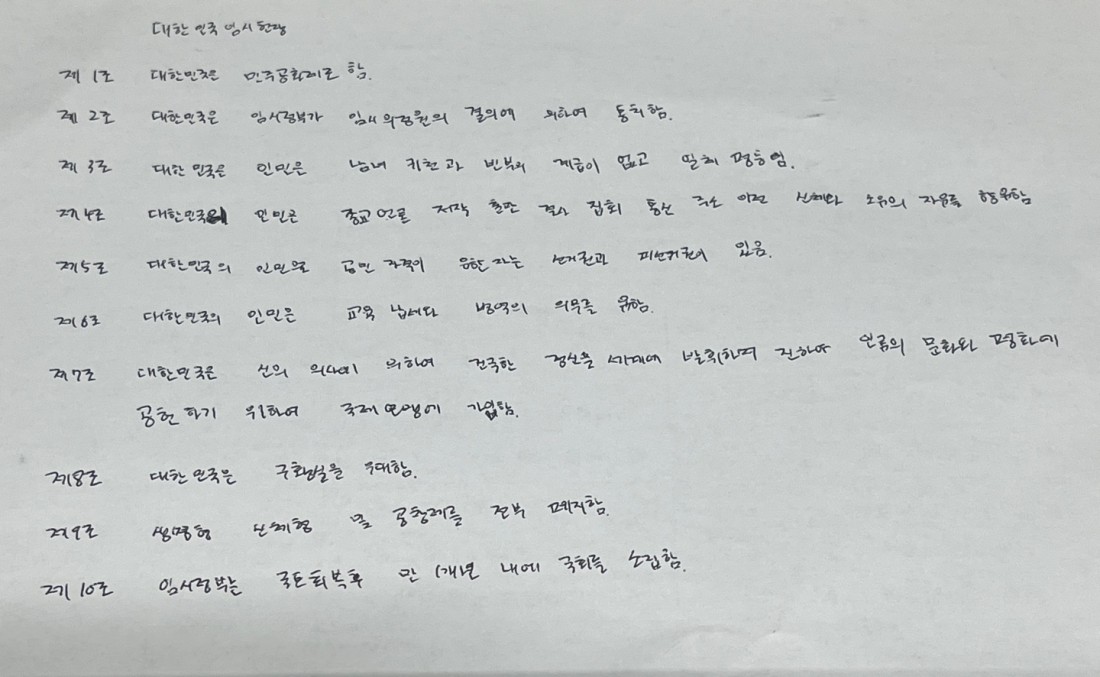 대한민국 임시 헌장
제 1조 대한민국은 민주공화제로 함.
제 2조 대한민국은 임시정부가 임시의정원의 결의에 의하여 통치함.
제 3조 대한민국은 인민은 남녀 귀천과 빈부의 계급이 없고 일체 평등임.
제4조 대한민국의 인민은 종교 언론 저작 출판 결사 집회 통신 주소 이전 신체와 소유의 자유를 향유함
제5조 대한민국의 인민으로 공민 자격이 유한 자는 선거권과 피선거권이 있음.
제6조 대한민국의 인민은 교육 납세와 병역의 의무를 유함.
제7조 대한민국은 신의 의사에 의하여 건국한 정신을 세계에 발휘하며 진하야 인류의 문화와 평화에
공헌하기 위하여 국제연맹에 가입함.
제8조 대한민국은 구황실을 우대함.
제9조 생명형 신체형 및 공창제를 전부 폐지함.
제10조 임시정부는 국토회복후 만 1개년 내에 국회를 소집함.